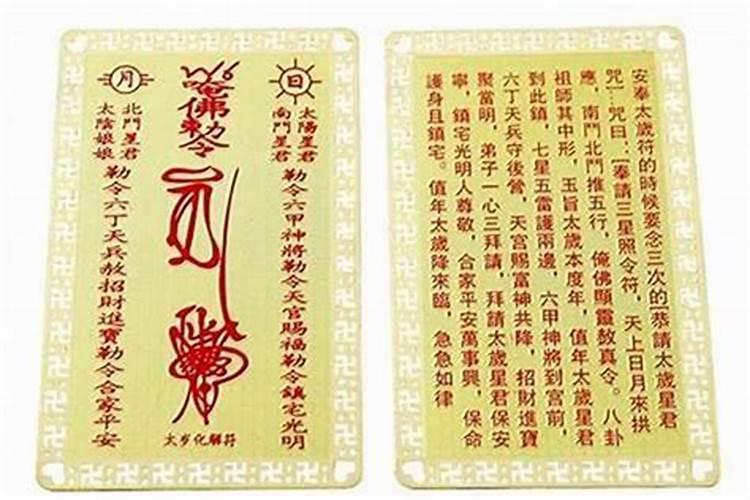 日
太陽星君
南門星君
勒令六甲神將勒令天官賜福勒令鎮宅光明
唵佛勅令
月
北門星君
太陰娘娘
勒令六丁天兵赦招財進寶勒令合家平安
太岁化解符
安奉太歲符的時候要念三次的[恭請太歲星君
咒]咒曰:[奉請三星照令符,天上日月來拱
應,南門北門推五行,俺佛顯靈敖真令。八卦
祖師其中形,玉旨太歲本度年,值年太歲星君
到此鎮,七星五雷護兩邊,六甲神將到宮前,
六丁天兵守後營,天宮賜富神共降,招財進寶
聚當明,弟子一心三拜請,拜請太歲星君保安
寧,鎮宅光明人尊敬,合家平安萬事興,保命
護身且鎮宅。值年太歲降來臨,急急如律